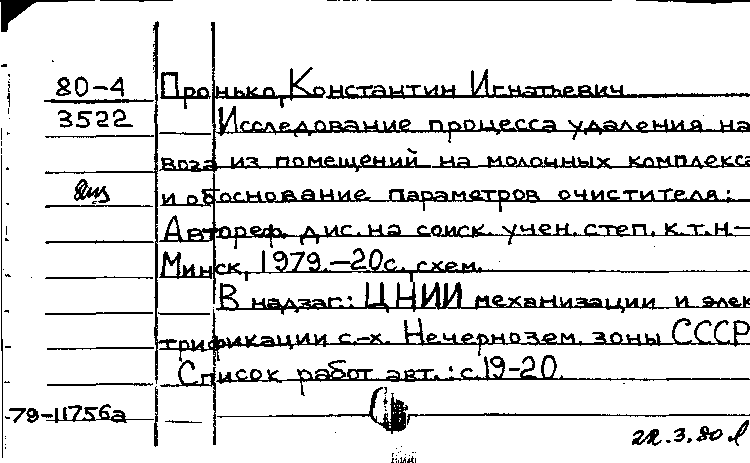 80-4 Пронько, Константин Игнатьевич
3522 Исследование процесса удаления на
воза из помещений на молочных комплекса
и обоснование параметров очистителя:
Автореф. дис. на соиск. учен. степ. к.т.н-
Минск, 1979.-20с., схем.
В надзаг.: ЦНИИ механизации и элек
трификации с.-х. Нечернозем. зоны СССР
Список работ авт.: с.19-20.
79-11756а
22.3.80